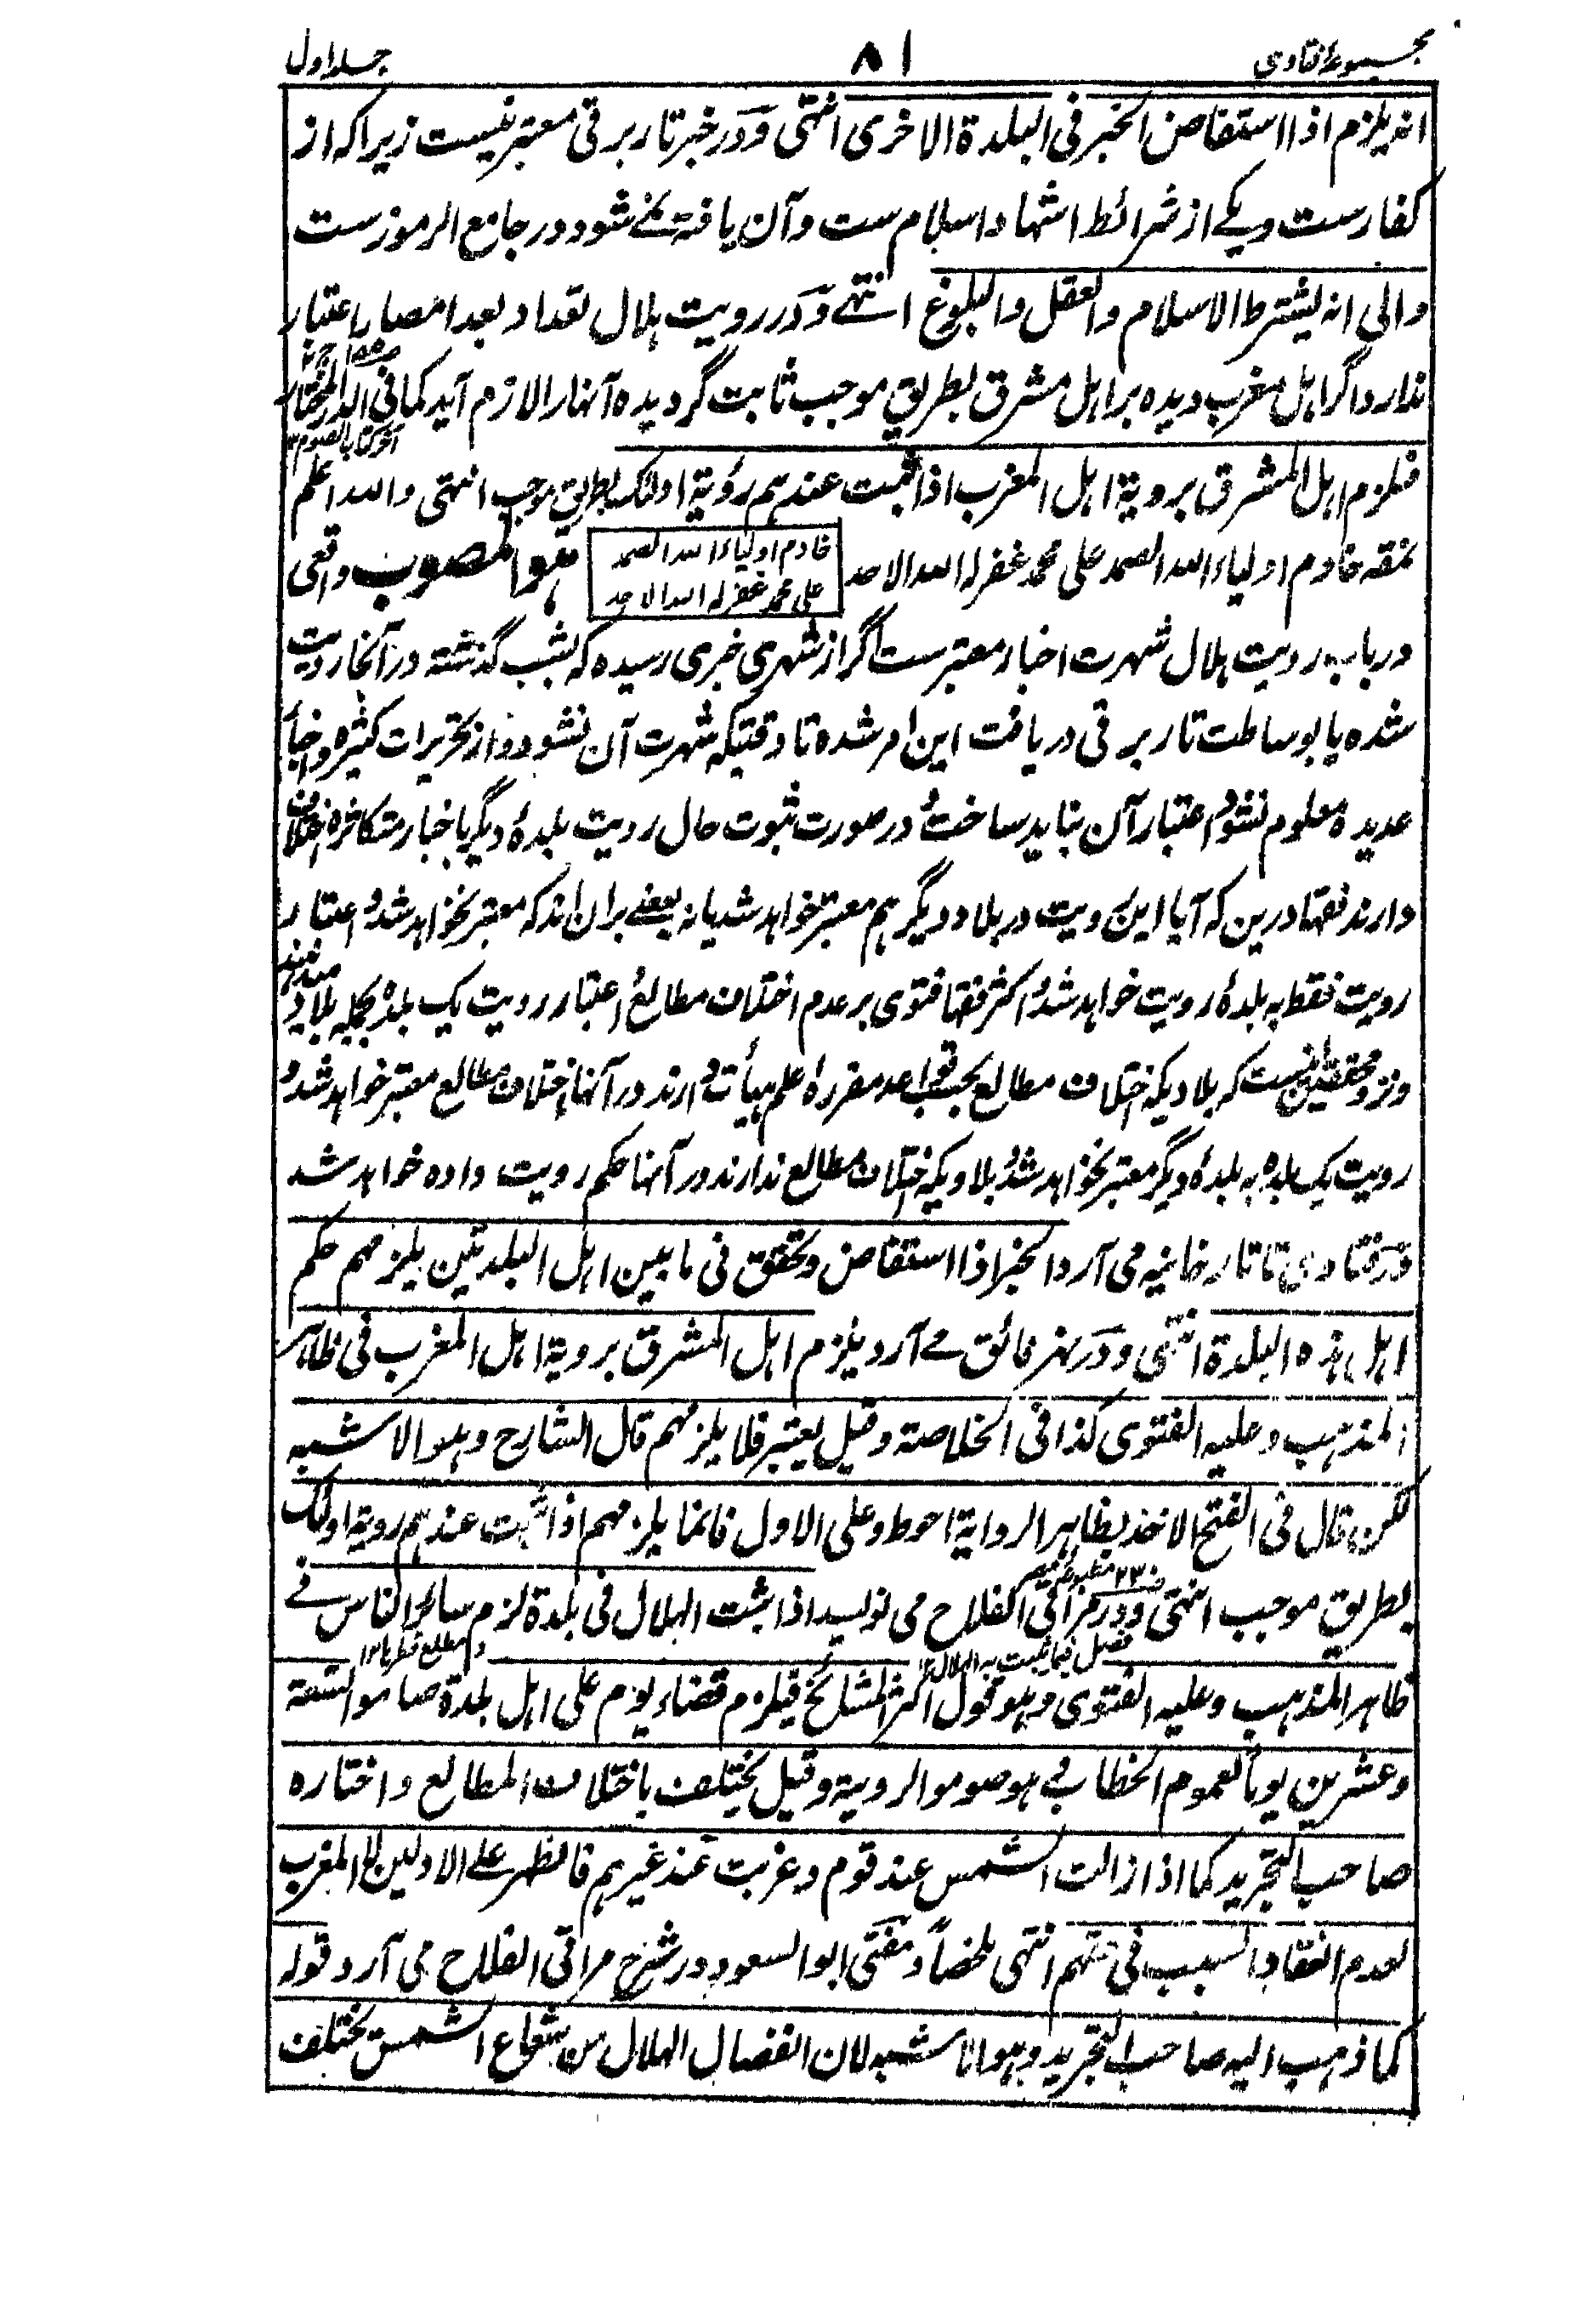 مجموعه فتاوی ۸۱ جلد اول
انه یلزم اذا استفاض الخبر فی البلدة الاخری انتهی و در خبر تار برقی معتبر نیست زیرا که از
کفار ست و یکے از شرائط اشهاد اسلام ست و آن یافته نمے شود در جامع الرموز ست
والی انه یشترط الاسلام والعقل والبلوغ انتهے و در رویت هلال تعداد بعد امصار را اعتبار
ندارد اگر اهل مغرب دیده بر اهل مشرق بطریق موجب ثابت گردیده آنها را لازم آید کما فی الدر المختار
آخر کتاب الصوم ۱۲
فیلزم اهل المشرق برویة اهل المغرب اذا ثبت عندهم رؤیة اولئک بطریق موجب انتهی والله اعلم
نمقه خادم اولیاء الله الصمد علی محمد غفر له الله الاحد
خادم اولیاء الله الصمد
علی محمد غفر له الله الاحد
هو المصوب واقعی
در باب رویت هلال شهرت اخبار معتبر ست اگر از شهری خبری رسیده که بشب گذشته در آنجا رویت
شده یا بوساطت تار برقی دریافت این امر شده تا وقتیکه شهرت آن نشود و از تحریرات کثیره و اخبار
عدیده معلوم نشود اعتبار آن نباید ساخت و در صورت ثبوت حال رویت بلدهٔ دیگر باخبار متکاثره اختلاف
دارند فقها درین که آیا این رویت در بلاد دیگر هم معتبر خواهد شد یا نه بعضے بران اند که معتبر نخواهد شد و اعتبار
رویت فقط به بلدهٔ رویت خواهد شد و اکثر فقها فتوی بر عدم اختلاف مطالع و اعتبار رویت یک بلده بجمله بلاد میدهند
و نزد محققین اینست که بلادیکه اختلاف مطالع بحسب قواعد مقررهٔ علم هیأت دارند در آنها اختلاف مطالع معتبر خواهد شد و
رویت یک بلده به بلدهٔ دیگر معتبر نخواهد شد و بلادیکه اختلاف مطالع ندارند در آنها حکم رویت داده خواهد شد
در فتاوی تاتارخانیه می آرد الخبر اذا استفاض وتحقق فی ما بین اهل البلدتین یلزمهم حکم
اهل هذه البلدة انتهی و در نهر فائق مے آرد یلزم اهل المشرق برویة اهل المغرب فی ظاهر
المذهب وعلیه الفتوی کذا فی الخلاصة وقیل یعتبر فلا یلزمهم قال الشارح وهو الاشبه
لکن قال فی الفتح الاخذ بظاهر الروایة احوط وعلی الاول فانما یلزمهم اذا ثبت عندهم رویة اولئک
بطریق موجب انتهی و در مراقی الفلاح می نویسد اذا ثبت الهلال فی بلدة لزم سائر الناس فے
فصل فیما یثبت به الهلال
ظاهر المذهب وعلیه الفتوی وهو قول اکثر المشائخ فیلزم قضاء یوم علی اهل بلدة صاموا تسعة
وعشرین یوماً لعموم الخطاب فے هو صوموا لرویته وقیل یختلف باختلاف المطالع واختاره
صاحب التجرید کما اذا زالت الشمس عند قوم وغربت عند غیرهم فالظهر علے الاولین لا المغرب
لعدم انعقاد السبب فی حقهم انتهی ملخصاً و مفتی ابو السعود در شرح مراقی الفلاح می آرد قوله
کما ذهب الیه صاحب التجرید وهو الاشبه لان انفصال الهلال من شعاع الشمس یختلف